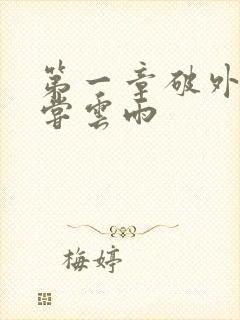 第一章破外
嘗雲雨
梅婷